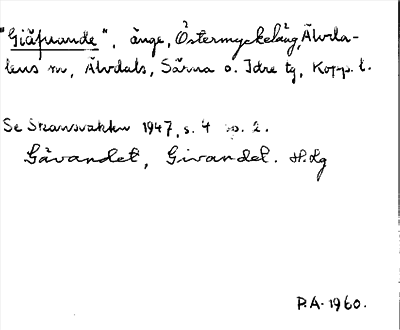 "Giäfuande", änge, Östermyckeläng, Älvda-
lens sn, Älvdals, Särna o. Idre tg, Kopp. l.
Se Skansvakten 1947, s. 4 sp. 2.
Gåvandet, Givandet. H.dg
P.A. 1960.